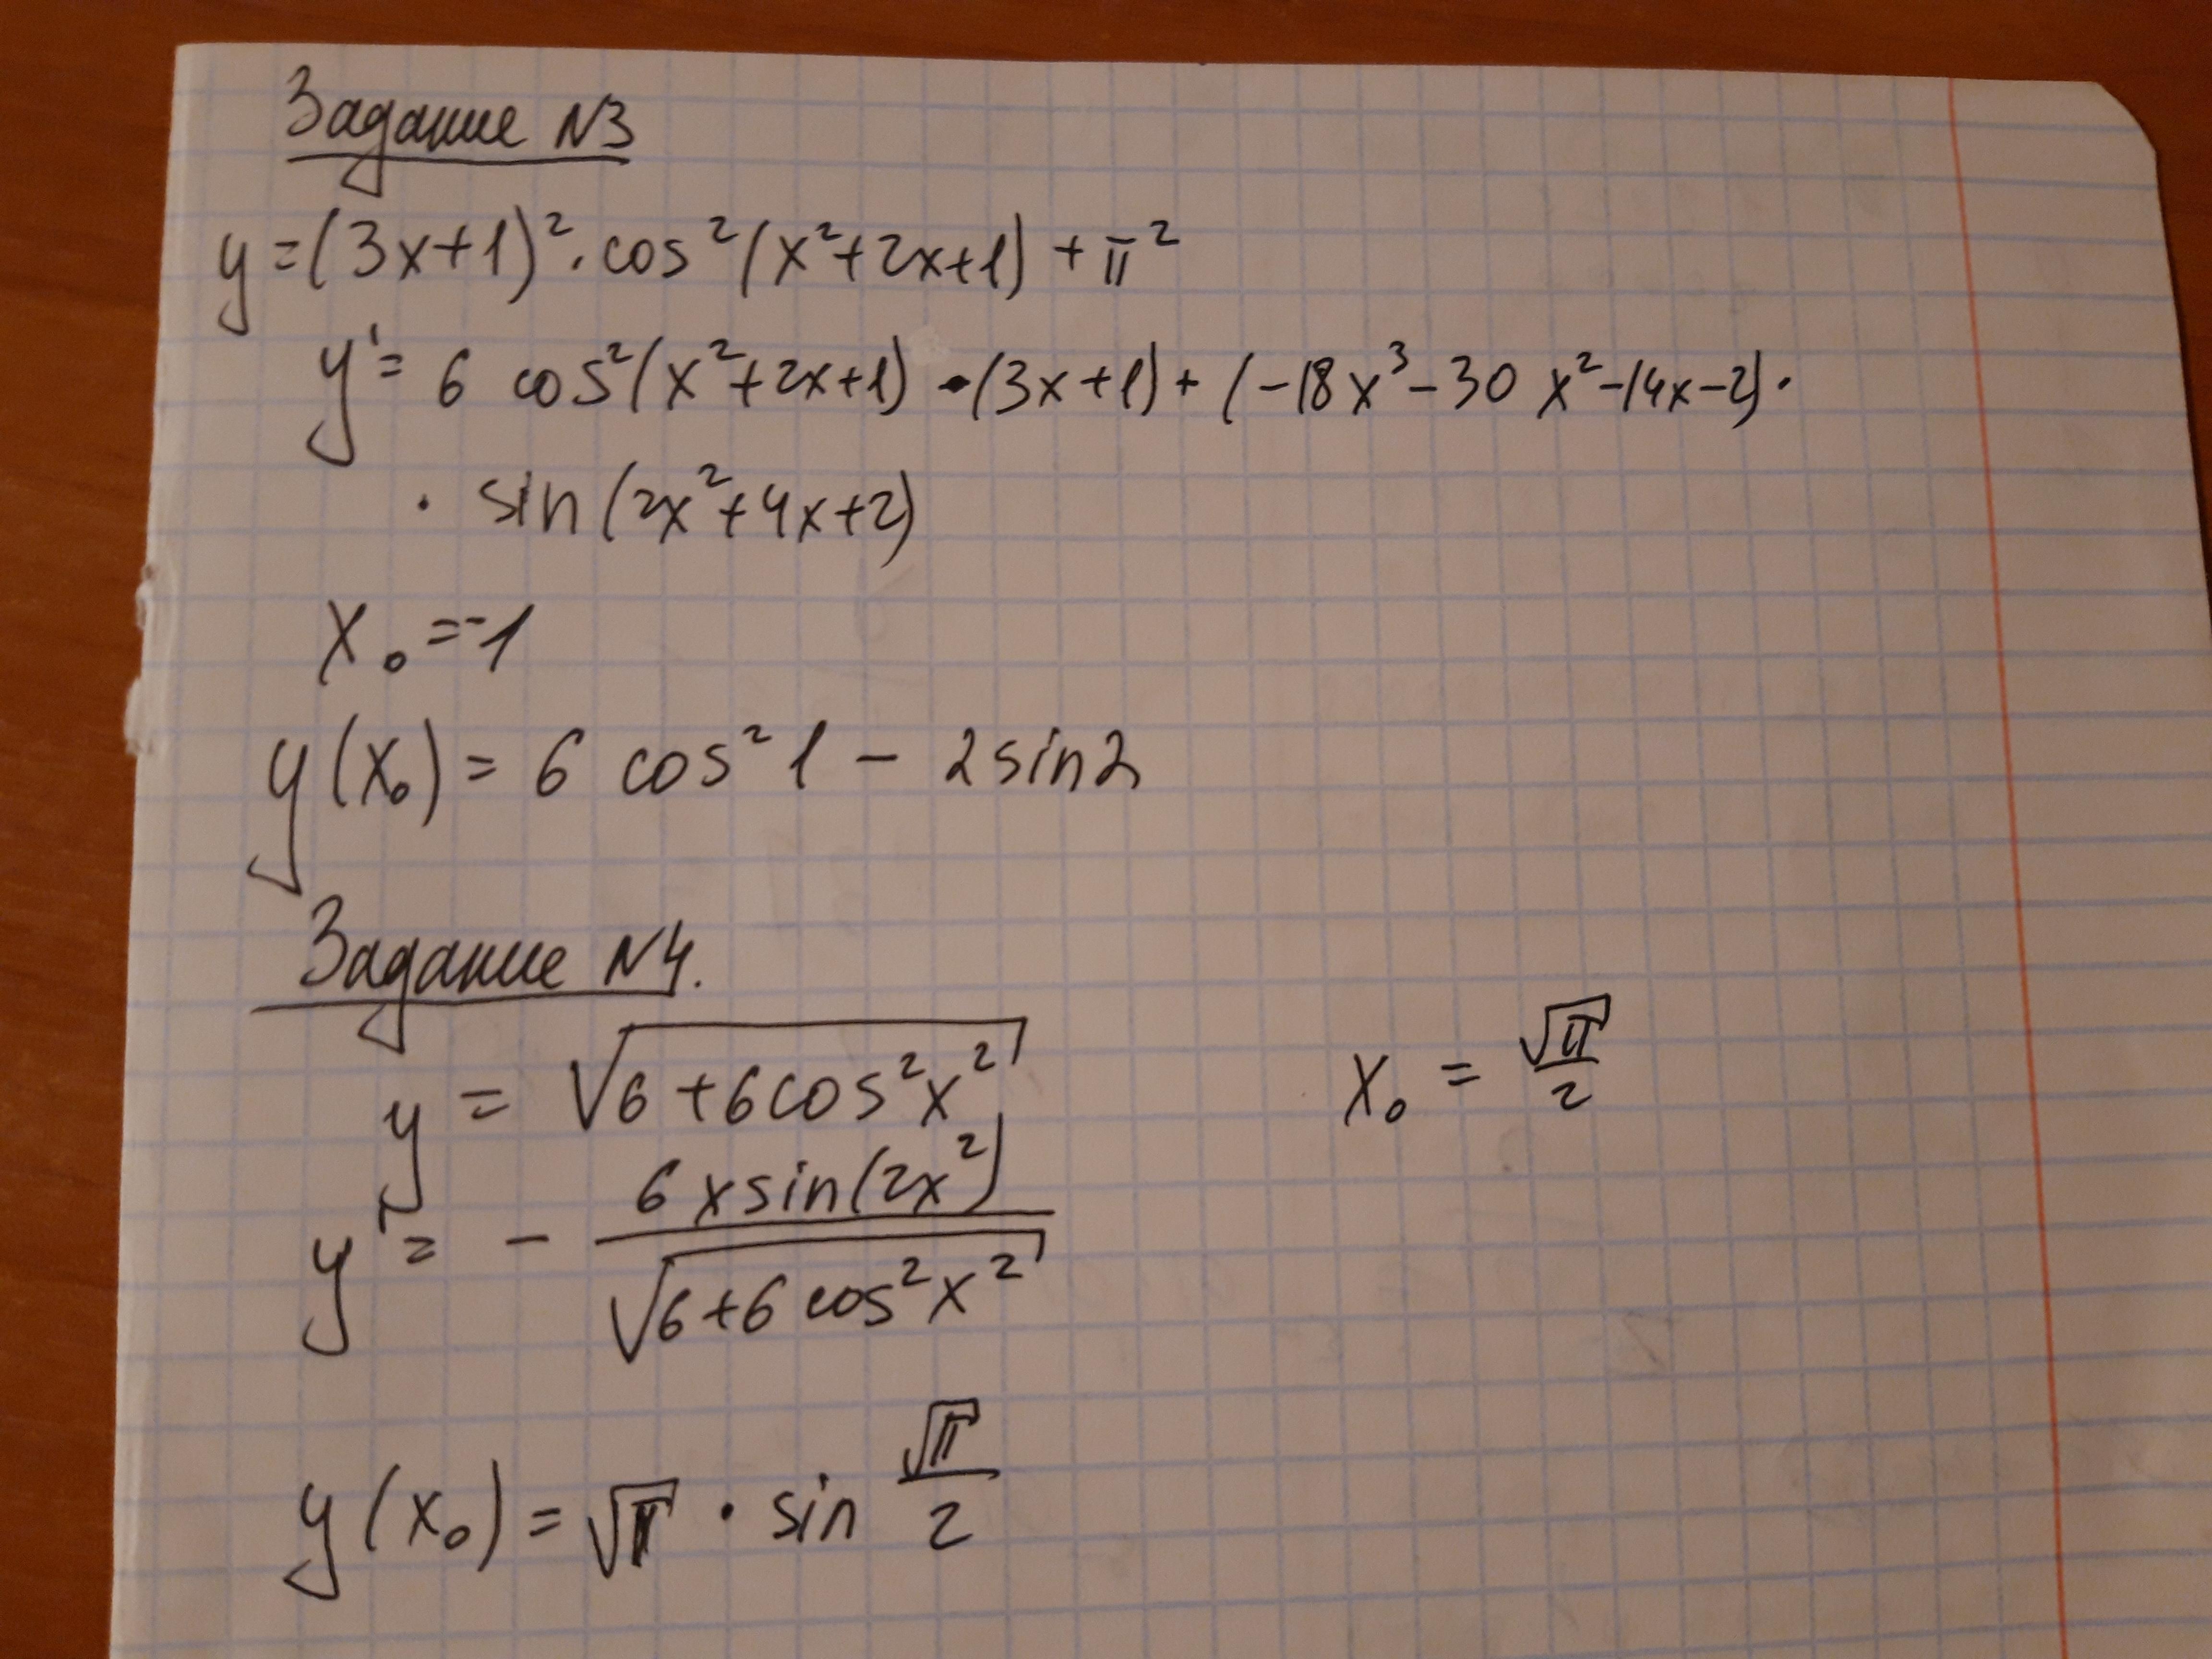 Задание №3
y = (3x+1)² · cos²(x²+2x+1) + π²
y' = 6 cos²(x²+2x+1) · (3x+1) + (-18x³-30x²-14x-2) ·
· sin(2x²+4x+2)
x₀ = -1
y(x₀) = 6 cos² 1 - 2 sin 2
Задание №4.
y = √(6+6cos²x²) x₀ = √π/2
y' = - 6x sin(2x²) / √(6+6cos²x²)
y(x₀) = √π · sin √π/2